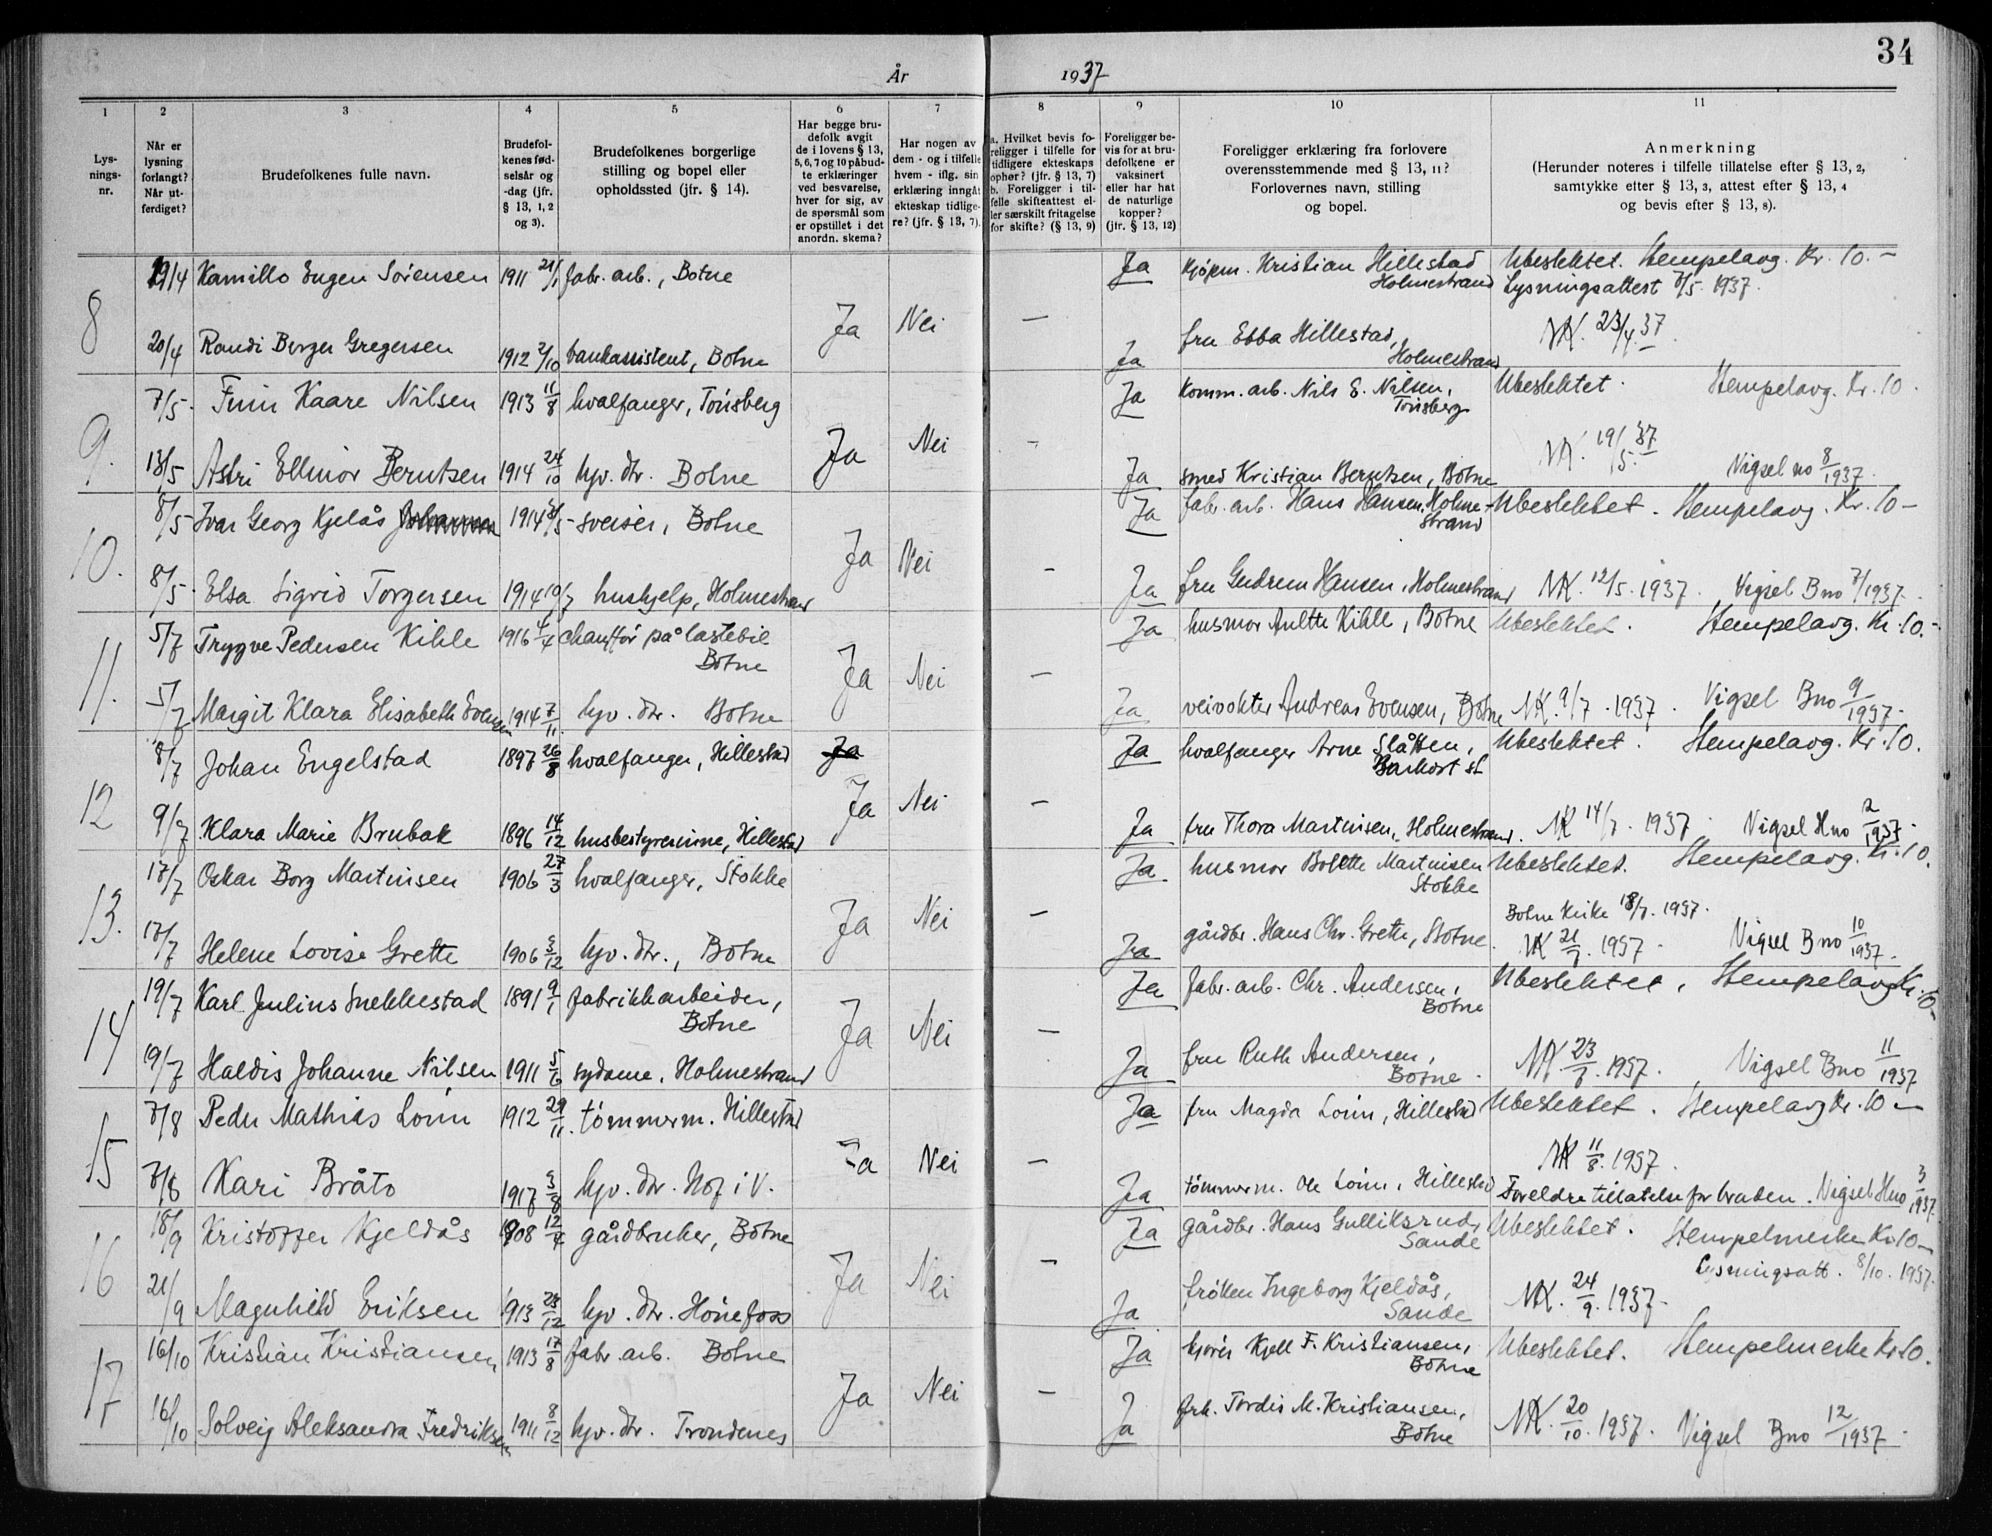 34
År 1937
1 2 3 4 5 6 7 8 9 10 11
Lys-
nings-
nr.
Når er
lysning
forlangt?
Når ut-
ferdiget?
Brudefolkenes fulle navn.
Brudefol-
kenes fød-
selsår og
-dag (jfr.
§ 13, 1, 2
og 3).
Brudefolkenes borgerlige
stilling og bopel eller
opholdssted (jfr. § 14).
Har begge bru-
defolk avgit
de i lovens § 13,
5, 6, 7 og 10 påbud-
te erklæringer
ved besvarelse,
hver for sig, av
de spørsmål som
er opstillet i det
anordn. skema?
Har nogen av
dem - og i tilfelle
hvem - iflg. sin
erklæring inngåt
ekteskap tidlige-
re? (jfr. § 13, 7).
a. Hvilket bevis fo-
religger i tilfelle for
tidligere ekteskaps
ophør? (jfr. § 13, 7)
b. Foreligger i til-
felle skifteattest el-
ler særskilt fritagelse
for skifte? (§ 13, 9)
Foreligger be-
vis for at bru-
defolkene er
vaksinert
eller har hat
de naturlige
kopper?
(jfr. § 13, 12)
Foreligger erklæring fra forlovere
overensstemmende med § 13, 11?
Forlovernes navn, stilling
og bopel.
Anmerkning
(Herunder noteres i tilfelle tillatelse efter § 13, 2,
samtykke efter § 13, 3, attest efter § 13, 4
og bevis efter § 13, 8).
19/4 Kamillo Eugen Sörensen 1911 21/1 fabr. arb., Botne Ja kjøpm. Kristian Hillestad Ubeslektet. Stempelavg. Kr. 10.-
Holmestrand Lysningsattest 7/5. 1937.
8 Ja Nei — NK. 23/4. 37.
20/4 Randi Berger Gregersen 1912 2/10 bankassistent, Botne Ja fru Ebba Hillestad,
Holmestrand
7/5. Finn Kaare Nilsen 1913 11/8 hvalfanger, Tönsberg Ja Komm. arb. Nils E. Nilsen, Ubeslektet. Stempelavg. Kr. 10.
Tönsberg
9. Ja Nei - NK. 19/5. 37
13/5 Astri Ellinor Berntsen 1914 24/10 hjv. dtr. Botne Ja smed Kristian Berntsen, Botne Vigsel no 8/1937.
8/5 Ivar Georg Kjelås 1914 sveiser, Botne Ja fabr. arb. Hans Hansen, Holme- Ubeslektet. Stempelavg. Kr. 10 -
strand
10. Ja Nei -
8/5 Elsa Sigrid Torgersen 1914 10/7 hushjelp, Holmestrand Ja fru Gudrun Hansen, Holmestrand NK. 12/5. 1937. Vigsel B no 7/1937.
5/7 Trygve Pedersen Kihle 1916 4/4 chauffør på lastebil Ja husmor Kihle, Botne Ubeslektet. Stempelavg. Kr. 10.-
Botne
11. Ja Nei —
5/7 Margit Klara Elisabeth Evensen 1914 7/11. hjv. dtr. Botne Ja veivokter Andreas Evensen, Botne NK. 9/7. 1937. Vigsel B no 9/1937.
8/7 Johan Engelstad 1897 26/8 hvalfanger, Hillestad Ja Ja hvalfanger Arne Slåtten, Ubeslektet. Stempelavg. Kr. 10.
Barkost st
12 Ja Nei —
9/7 Klara Marie Brubak 1896 14/12 husbestyrerinne, Hillestad Ja fru Thora Martinsen, Holmestrand. NK 14/7. 1937. Vigsel H no 2/1937.
17/7 Oskar Borg Martinsen 1906 27/3 hvalfanger, Stokke Ja husmor Bolette Martinsen Ubeslektet. Stempelavg. Kr. 10.
Stokke
13. Ja Nei — Botne Kirke 18/7. 1937.
17/7 Helene Lovise Grette 1906 hjv. dtr., Botne Ja gårdbr. Hans Chr. Grette, Botne. NK 21/7. 1937. Vigsel B no 10/1937.
19/7 Karl Julius Snekkestad 1891 9/1 fabrikkarbeider, Ja fabr. arb. Chr. Andersen, Ubeslektet, Stempelavg Kr. 10-
Botne Botne
14 Ja Nei —
19/7 Haldis Johanne Nilsen 1911 5/6 sydame, Holmestrand Ja fru Ruth Andersen, NK 23/7. 1937. Vigsel B no 11/1937
Botne.
7/8 Peder Mathias Lonn 1912 29/11. tömmerm. Hillestad Ja fru Magda Lonn, Hillestad Ubeslektet. Stempelavg Kr. 10 —
15 Ja Nei — NK 11/8. 1937.
7/8 Kari Bråto 1917 3/8 hjv. dtr. Hof i V. Ja tömmerm. Ole Lonn, Hillestad Foreldretillatelse for bruden. Vigsel H no 3/1937.
18/9 Kristoffer Kjeldås 1908 12/4 gårdbruker, Botne Ja gårdbr. Hans Gulliksrud, Ubeslektet. Stempelmerke Kr 10 —
Sande
16 Ja Nei — Lysningsatt. 8/10. 1937.
21/9 Magnhild Eriksen 1913 hjv. dtr. Hönefoss Ja fröken Ingeborg Kjeldås, NK. 24/9. 1937.
Sande
16/10 Kristian Kristiansen 1913 17/8 fabr. arb. Botne Ja Kjell F. Kristiansen, Ubeslektet. Stempelmerke Kr 10.
Botne
17 Ja Nei —
16/10 Solveig Aleksandra Fredriksen 1911 8/12 hjv. dtr. Trondenes Ja frk. Tordis M. Kristiansen, NK. 20/10. 1937. Vigsel B no 12/1937.
Botne